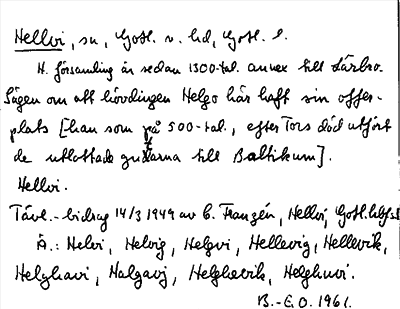 Hellvi, sn, Gotl. n. hd, Gotl. l.
H. församling är sedan 1300-tal. annex till Lärbro.
Sägen om att hövdingen Helgo här haft sin offer-
plats [han som på 500-tal., efter Tors död utfört
de utlottade gutarna till Baltikum].
Hellvi.
Tävl.-bidrag 14/3 1949 av C. Franzén, Hellvi, Gotl.
Ä.: Helvi, Helvig, Helgvi, Hellevig, Hellevik,
Helghavi, Halgavj, Helghavik, Helghuvi.
B.-E.O. 1961.